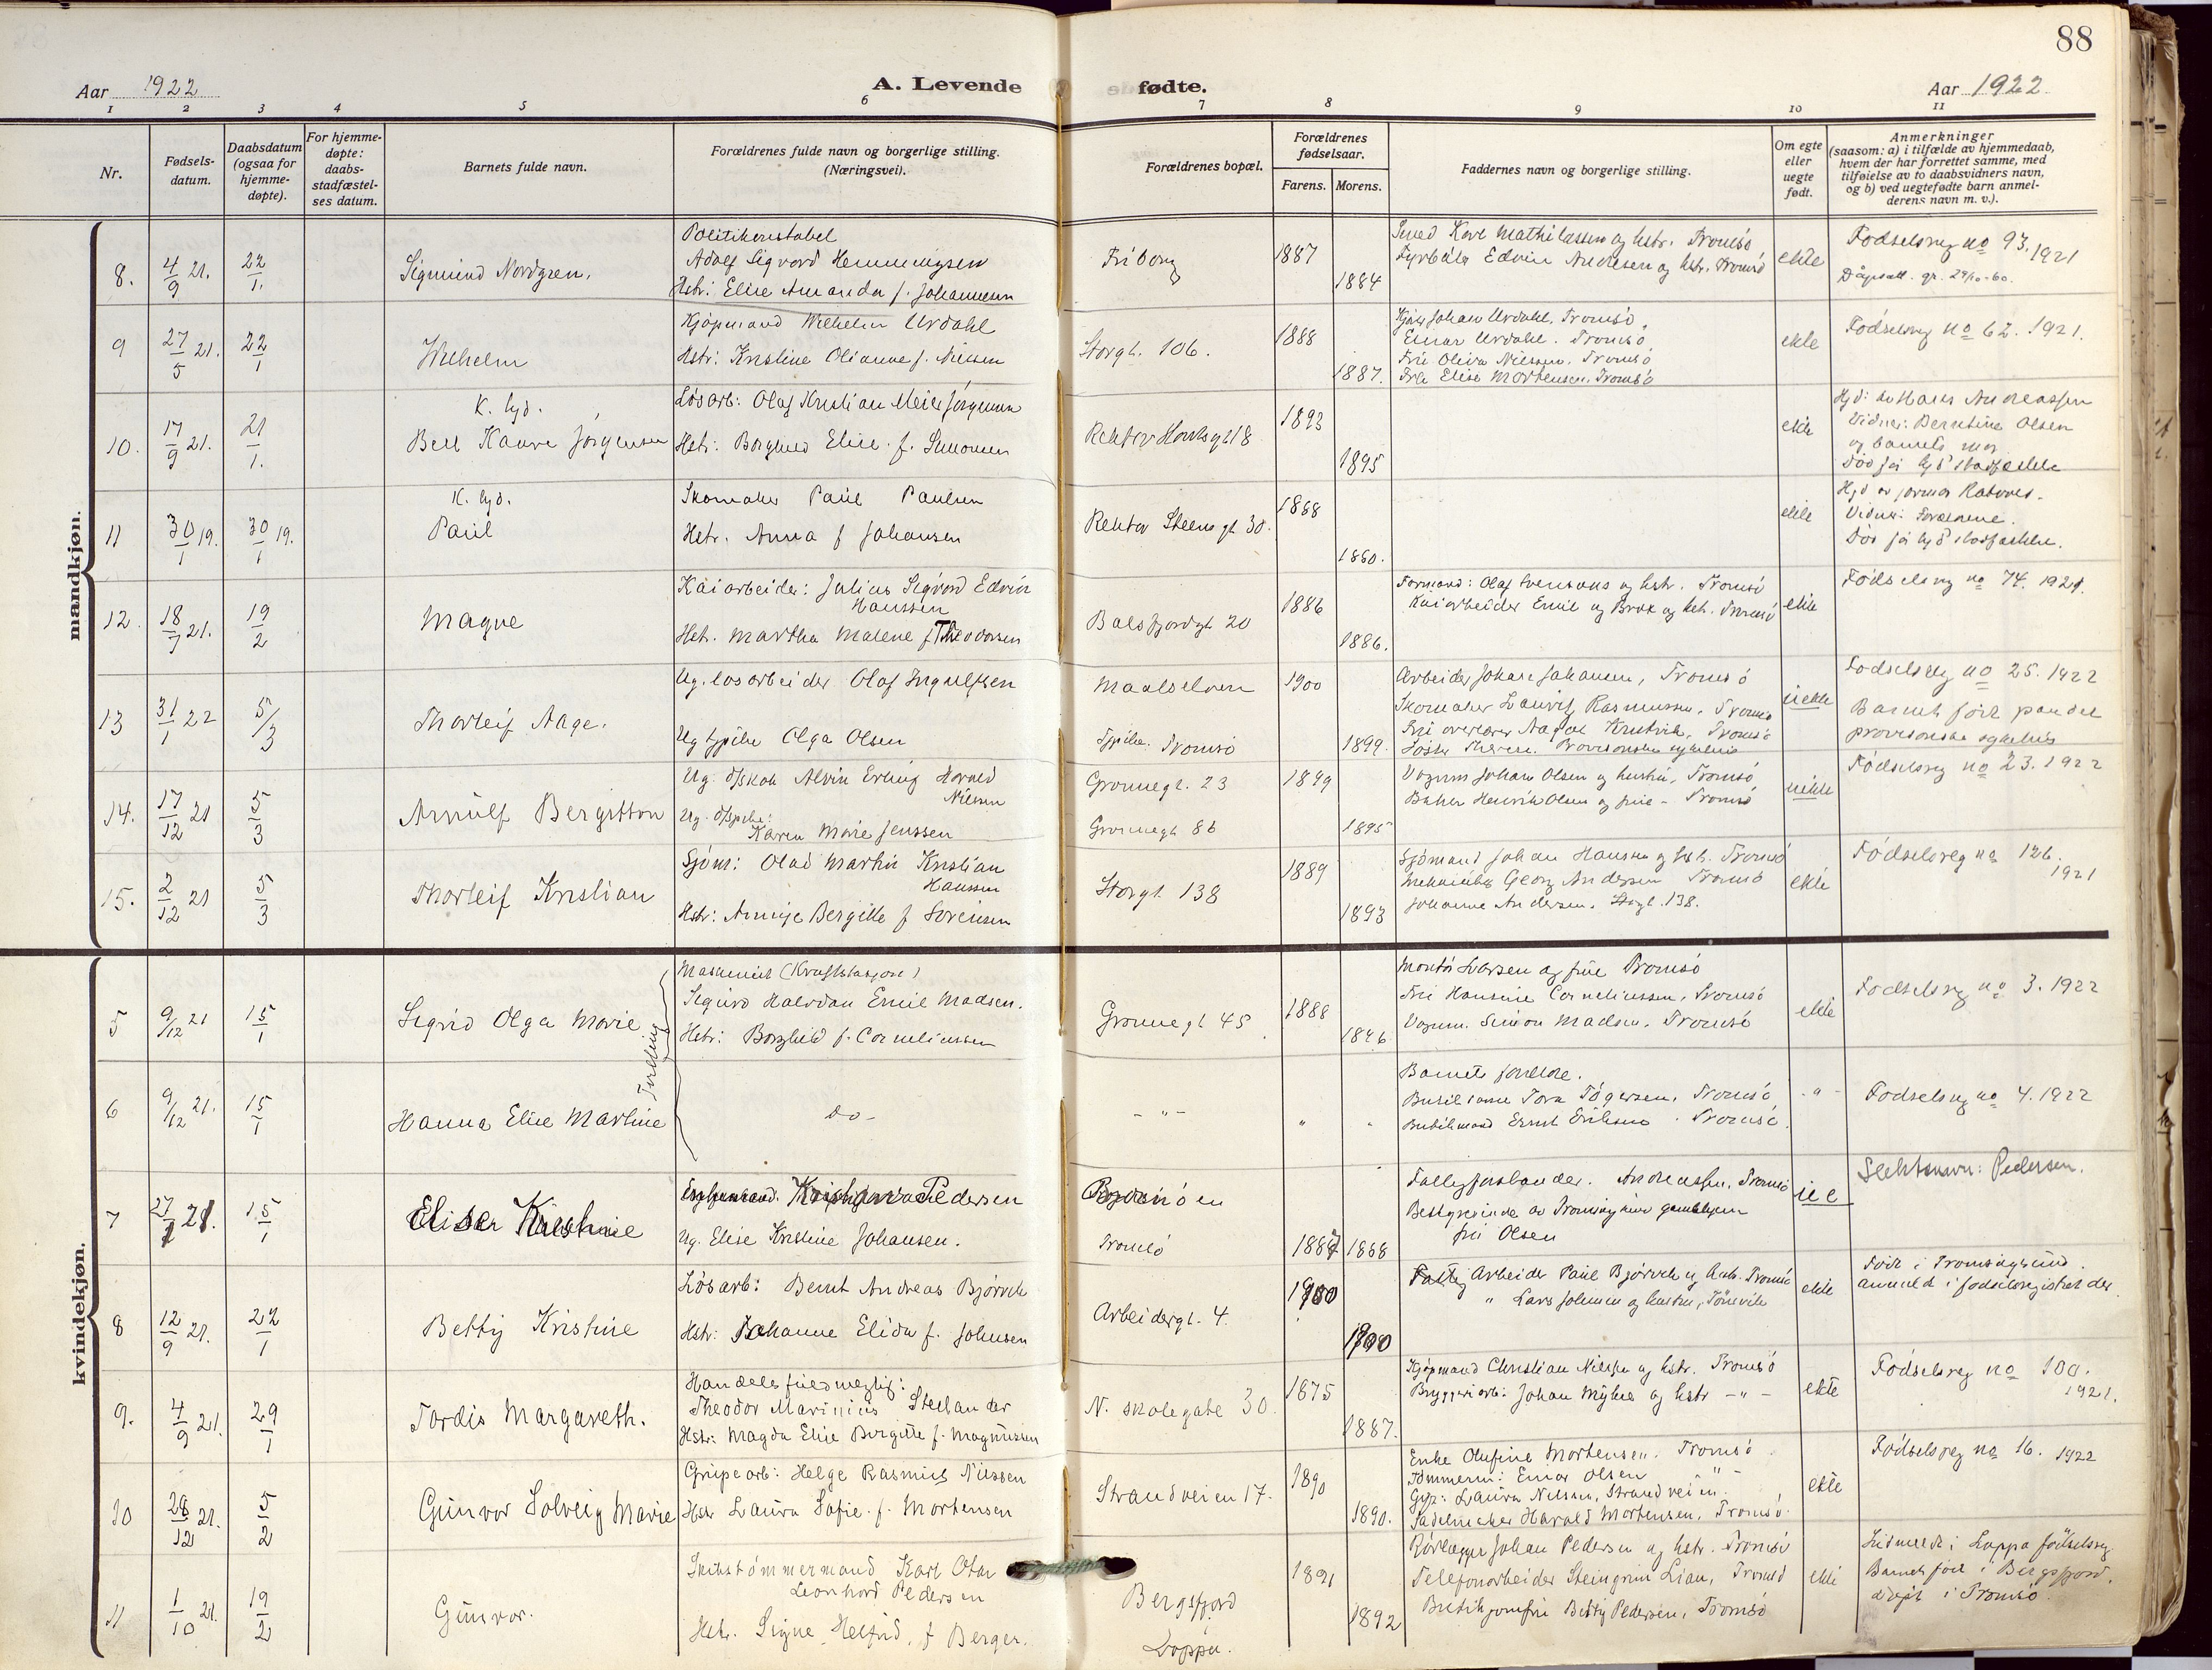 88
Aar 1922
A. Levende fødte.
Aar 1922.
1 2 3 4 5 6 7 8 9 10 11
Nr.
Fødsels-
datum.
Daabsdatum
(ogsaa for
hjemme-
døpte).
For hjemme-
døpte:
daabs-
stadfæstel-
ses datum.
Barnets fulde navn.
Forældrenes fulde navn og borgerlige stilling.
(Næringsvei).
Forældrenes bopæl.
Forældrenes
fødselsaar.
Farens. Morens.
Faddernes navn og borgerlige stilling.
Om egte
eller
uegte
født.
Anmerkninger
(saasom: a) i tilfælde av hjemmedaab,
hvem der har forrettet samme, med
tilføielse av to daabsvidners navn,
og b) ved uegtefødte barn anmel-
derens navn m. v.).
mandkjøn.
8. 4/9 21. 22/1.
Sigmund Nordgren.
Politikonstabel
Adolf Sigvard Henningsen
Hstr: Elise Amanda f. Johannesen
Friborg
1887
1884
Smed Karl Mathilassen og hstr. Tromsø
Fyrbøter Edvin Andresen og hstr. Tromsø
ekte
Fødselsreg no 93. 1921
Dåpsatt. gr. 29/10-60.
9 27/5 21. 22/1
Wilhelm
Kjøpmand Wilhelm Urdahl
Hstr: Kristine Olianne f. Nilssen
Storgt. 106.
1888
1887.
Kjøbm Johan Urdahl. Tromsø.
Einar Urdahl. Tromsø
Frk. Oliva Nilssen. Tromsø
Frk Elise Mortensen. Tromsø
ekte
Fødselsreg no 62. 1921.
10. 17/9 21. 21/1.
K. hjd.
Bell Kaare Jørgensen
Løsarb: Olaf Kristian Meier Jørgensen
Hstr: Borghild Elise f. Simonsen
Rektor Horstsgt 18
1893
1895
ekte
Hjd: av Hanna Andreassen
Vidner: Berntine Olsen
og barnets mor
Død før hjd stadfestelse
11 30/1 19. 30/1 19.
K. hjd.
Paul
Skomaker Paul Paulsen
Hstr. Anna f Johansen
Rektor Steensgt 30.
1868
1880.
ekte
Vidner: Forældrene.
Død før hjd stadfestelse.
12. 18/7 21. 19/2
Magne
Kaiarbeider: Julius Sigvard Edvin
Hanssen
Hstr. Martha Malene f Theodorsen
Balsfjordgt 20
1886
1886.
Formand: Olaf Svendsens og hstr. Tromsø
Kaiarbeider Emil og Brox og hstr. Tromsø
ekte
Fødselsreg no 74. 1921.
13 31/1 22 5/3
Thorleif Aage.
Ug. løsarbeider Olaf Ingulfsen
Ug tjpike Olga Olsen
Maalselven
Tjpike. Tromsø
1900
1899.
Arbeider Johan Johansen, Tromsø
Skomaker Lauritz Rasmussen. Tromsø
uekte
Fødselsreg no 25. 1922
Barnet født paa det
provisoriske sykehus
14. 17/12 21 5/3
Arnulf Bergitton
Ug. fisker Alvin Erling Harald
Nilsen
Karen Marie Jenssen
Grønnegt. 23
Grønnegt 86
1899
1895
Vognm Johan Olsen og hustru, Tromsø
Baker Henrik Olsen og frue - Tromsø
uekte
Fødselsreg no 23. 1922
15. 2/12 21 5/3
Thorleif Kristian
Sjøm: Olad Martin Kristian
Hanssen
Hstr: Annye Bergitte f Sørensen
Storgt 138
1889
1893
Sjømand Johan Hanssen og hstr. Tromsø
Georg Andersen Tromsø
Johanne Andersen. Storgt. 138.
ekte
Fødselsreg no 126.
1921
kvindekjøn.
5 9/12 21 15/1
Sigrid Olga Marie
Tvilling
Maskinist (Kraftstasjon)
Sigurd Halvdan Emil Madsen.
Hstr: Borghild f. Corneliussen
Grønnegt 45
1888
1896
Montør Larsen og frue Tromsø
Frk Hansine Corneliussen, Tromsø
Vognm. Simon Madsen. Tromsø
ekte
Fødselsreg no 3. 1922
6 9/12 21. 15/1
Hanna Elise Martine
do -
- " -
" "
Barnets foreldre.
Butikdame Tora Tøgersen, Tromsø
Butikmand Ernst Eriksen. Tromsø.
- " -
Fødselsreg no 4. 1922
7 27/7 21. 15/1
Elise Kristine
Pedersen
Ug. Elise Kristine Johansen.
Tromsø
1887 1888
Fattigforstander. Andreassen, Tromsø
Bestyrerinde av Tromsø gamlehjem
frk Olsen
ue
Slektsnavn: Pedersen.
8 12/9 21. 22/1
Betty Kristine
Løsarb: Bernt Andreas Bjørvik
Hstr: Johanne Elida f. Johnsen
Arbeidergt. 4.
1900
1900
Arbeider Paul Bjørvik og hstr. Tromsø
" Lars Johnsen og hustru, Tønsvik
ekte
Født i Tromsøysund.
anmeldt i fødselsregistret der.
9. 4/9 21. 29/1
Tordis Margareth.
Handelsfuldmegtig:
Theodor Marinius Stellander
Hstr: Magda Elise Birgitte f. Magnussen
N. skolegate 30
1875
1887.
Kjøpmand Christian Nilsen og hstr. Tromsø
Bryggeriarb: Johan Myhre og hstr - " -
ekte
Fødselsreg no 100.
1921.
10 28/12 21. 5/2
Gunvor Solveig Marie
Grubearb: Helge Rasmus Nilssen
Hstr Laura Sofie f. Mortensen
Strandveien 17.
1890
1890.
Enke Olufine Mortensen. Tromsø.
Tømmerm: Einar Olsen - " -
Gyp: Laura Nilsen, Strandveien.
Sadelmaker Harald Mortensen, Tromsø.
ekte
Fødselsreg no 16. 1922
11 1/10 21. 19/2
Gunvor.
Skibstømmermand Karl Otar
Leonhard Pedersen
Hstr. Signe Helfrid. f Berger.
Bergsfjord
Loppa.
1891
1892
Rørlægger Johan Pedersen og hstr. Tromsø
Telefonarbeider Steingrim Lian, Tromsø
Butikjomfru Betty Pedersen, Tromsø
ekte
Indmeldt i Loppa fødselsreg.
Barnet født i Bergsfjord.
døpt i Tromsø.